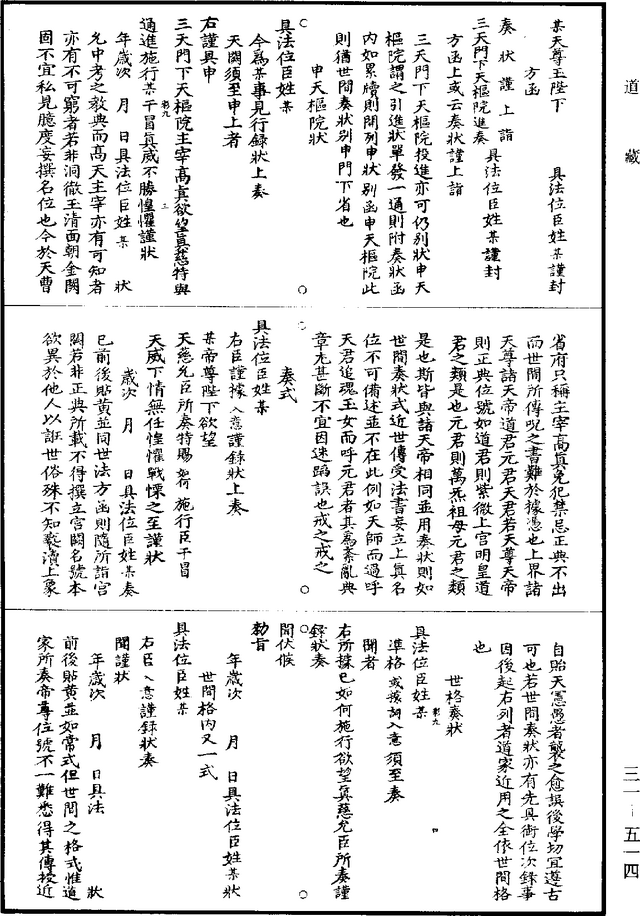 道藏
某天尊玉陛下　　　具法位臣姓某謹封
方函
奏狀謹上詣　　　具法位臣姓某謹封
三天門下天樞院進奏
方函上或云奏狀謹上詣
三天門下天樞院投進亦可仍別狀申天
樞院謂之引進狀單發一通則附奏狀函
內如累牘則開列申狀別函申天樞院此
則猶世間奏狀別申門下省也
申天樞院狀
具法位臣姓某
今為某事見行錄狀上奏
天闕須至申上者
右謹具申
三天門下天樞院主宰高真欲望真慈特與
通進施行某干冒真威不勝惶懼謹狀
年歲次　月　日具法位臣姓某　狀
允中考之教典而高天主宰亦有可知者
亦有不可窮者若非洞徹玉清面朝金闕
固不宜私見臆度妄撰名位也今於天曹
省府只稱主宰高真免犯禁忌正典不出
而世間所傳呪之書難於據憑也上界諸
天尊諸天帝道君元君天君若天尊天帝
則正典位號如道君則紫微上宮明皇道
君之類是也元君則萬炁祖母元君之類
是也斯皆與諸天帝相同並用奏狀則如
世間奏狀式近世傳受法書妄立上真名
位不可備述並不在此例如天師而過乎
天君追魂玉女而呼元君者其為紊亂典
章尤甚斷不宜因迷蹈誤也戒之戒之
奏式
具法位臣姓某
右臣謹據入意謹錄狀上奏
某帝尊陛下欲望
天慈允臣所奏特賜如何施行臣干冒
天威下情無任惶懼戰慄之至謹狀
歲次　月　日具法位臣姓某奏
已前後貼黃並同世法方函則隨所詣宮
闕若非正典所載不得撰立宮闕名號本
欲異於他人以誑世俗殊不知褻瀆上象
自貽天憲愚者襲之愈誤後學切宜遵古
可也若世間奏狀亦有先具銜位次錄事
因後起右列者道家近用之全依世間格
也
世格奏狀
具法位臣姓某
準格或據詞入意須至奏
聞者
右所據已如何施行欲望真慈允臣所奏謹
錄狀奏
聞伏候
勑旨
年歲次　月　日具法位臣姓某狀
世間格內又一式
具法位臣姓某
右臣入意謹錄狀奏
聞謹狀
年歲次　月　日具法　狀
前後貼黃並如常式但世間之格式惟道
家所奏帝尊位號不一難悉得其傳授近
三一－五一四